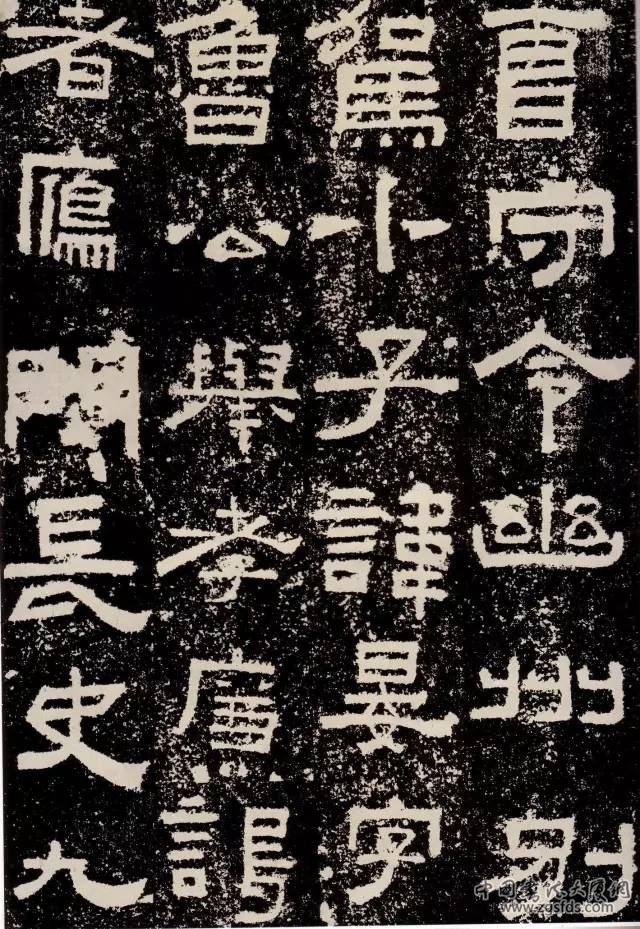 曹守令幽州別
駕小子諱晏字
魯公舉孝廉謁
者雁門長史九
中国书法大展网
www.zgsfds.com